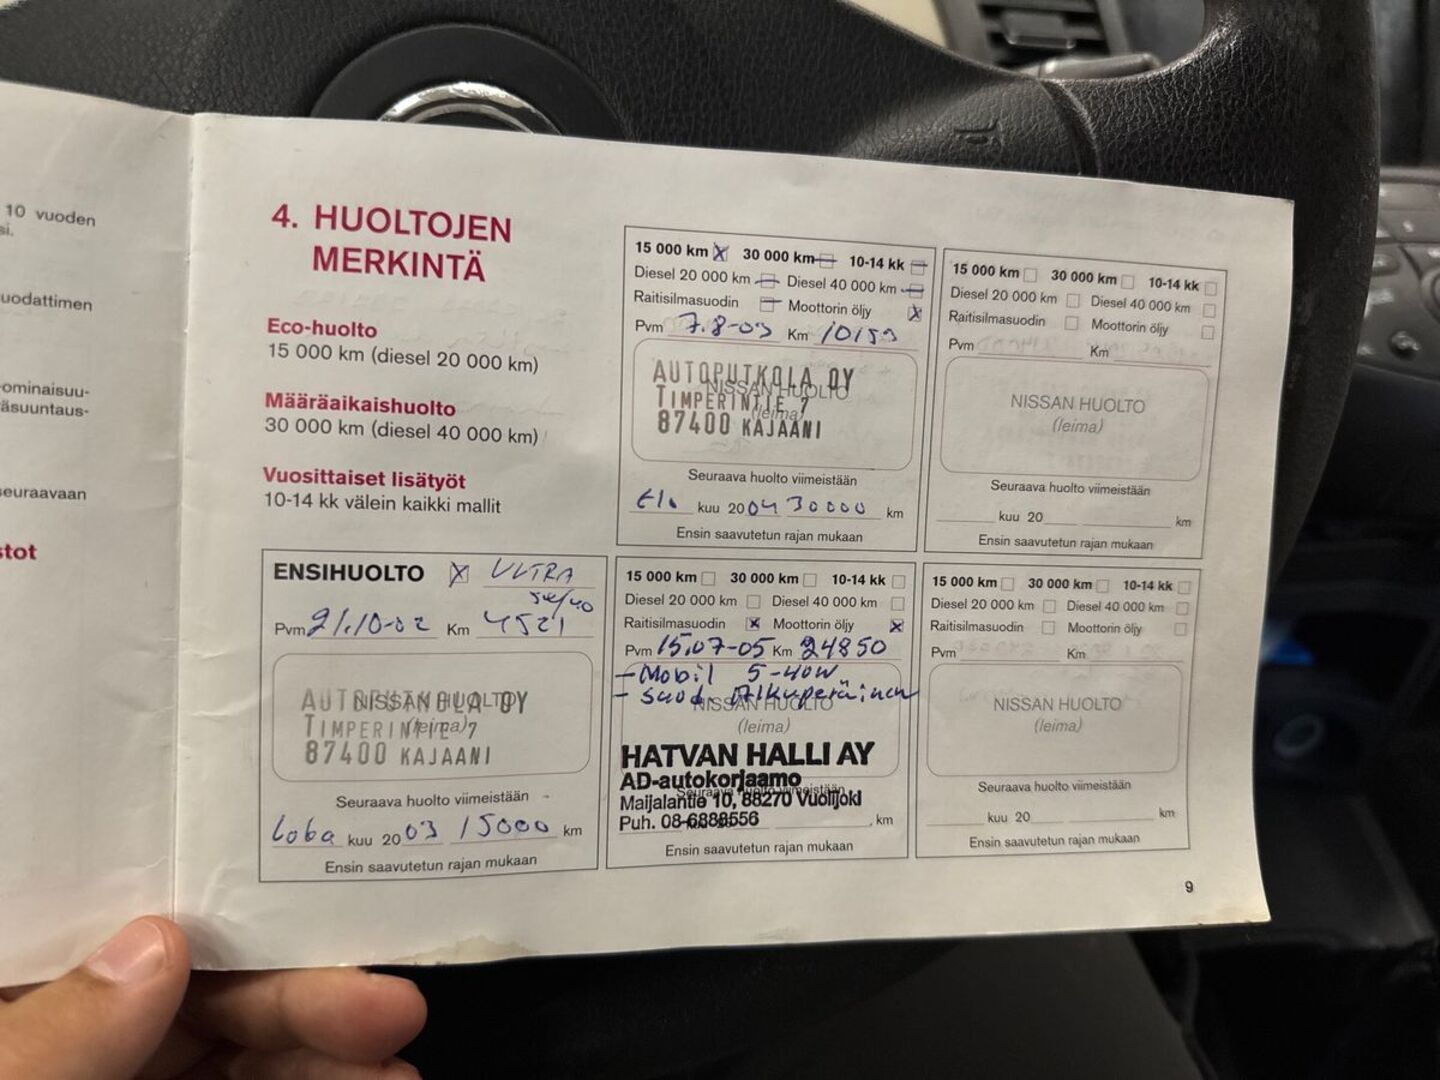 10 vuoden
si.
uodattimen
ominaisuu-
äsuuntaus-
seuraavaan
stot
4. HUOLTOJEN
MERKINTÄ
Eco-huolto
15 000 km (diesel 20 000 km)
Määräaikaishuolto
30 000 km (diesel 40 000 km)
Vuosittaiset lisätyöt
10-14 kk välein kaikki mallit
15 000 km X 30 000 km 10-14 kk
Diesel 20 000 km Diesel 40 000 km
Raitisilmasuodin Moottorin öljy X
Pvm 7.8-03 Km 10153
NISSAN HUOLTO
(leima)
AUTOPUTKOLA OY
TIMPERINTIE 7
87400 KAJAANI
Seuraava huolto viimeistään
Elo kuu 2004 30000 km
Ensin saavutetun rajan mukaan
15 000 km 30 000 km 10-14 kk
Diesel 20 000 km Diesel 40 000 km
Raitisilmasuodin Moottorin öljy
Pvm Km
NISSAN HUOLTO
(leima)
Seuraava huolto viimeistään
kuu 20 km
Ensin saavutetun rajan mukaan
ENSIHUOLTO X ULTRA
5W/40
Pvm 21.10-02 Km 4521
NISSAN HUOLTO
(leima)
AUTOPUTKOLA OY
TIMPERINTIE 7
87400 KAJAANI
Seuraava huolto viimeistään
Loka kuu 2003 15000 km
Ensin saavutetun rajan mukaan
15 000 km 30 000 km 10-14 kk
Diesel 20 000 km Diesel 40 000 km
Raitisilmasuodin X Moottorin öljy X
Pvm 15.07-05 Km 24850
- Mobil 5-40W
- suod. Alkuperäinen
NISSAN HUOLTO
(leima)
HATVAN HALLI AY
AD-autokorjaamo
Seuraava huolto viimeistään
Maijalantie 10, 88270 Vuolijoki
Puh. 08-6888556
kuu 20 km
Ensin saavutetun rajan mukaan
15 000 km 30 000 km 10-14 kk
Diesel 20 000 km Diesel 40 000 km
Raitisilmasuodin Moottorin öljy
Pvm Km
NISSAN HUOLTO
(leima)
Seuraava huolto viimeistään
kuu 20 km
Ensin saavutetun rajan mukaan
9